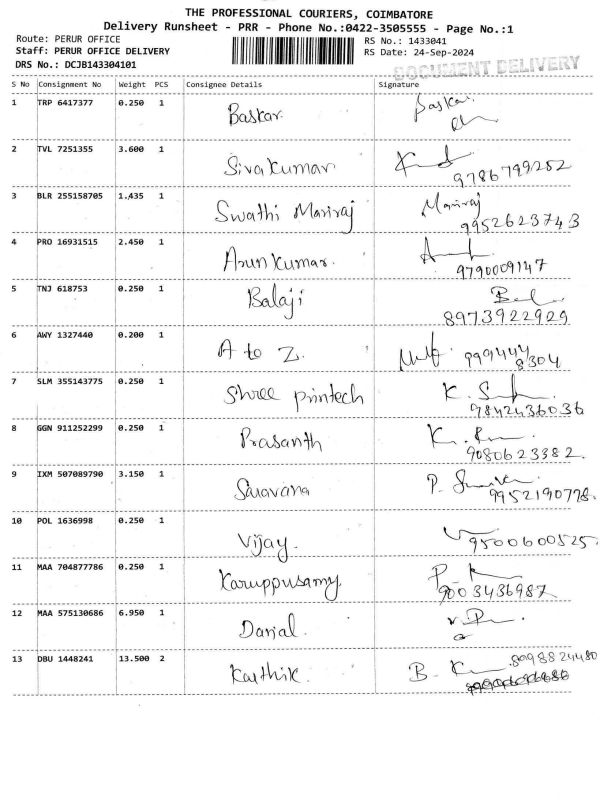 THE PROFESSIONAL COURIERS, COIMBATORE
Delivery Runsheet - PRR - Phone No.:0422-3505555 - Page No.:1
Route: PERUR OFFICE
RS No.: 1433041
Staff: PERUR OFFICE DELIVERY
RS Date: 24-Sep-2024
DRS No.: DCJB143304101
DOCUMENT DELIVERY
S No Consignment No Weight PCS Consignee Details Signature
1 TRP 6417377 0.250 1 Baskar. Baskar
2 TVL 7251355 3.600 1 Sivakumar
9786799252
3 BLR 255158705 1,435 1 Swathi Mariraj Mariraj
9952623743
4 PRO 16931515 2.450 1 Arunkumar.
9790009147
5 TNJ 618753 0.250 1 Balaji
8973922929
6 AWY 1327440 0.200 1 A to Z. 999444
8304
7 SLM 355143775 0.250 1 Shree printech
9842436036
8 GGN 911252299 0.250 1 Prasanth
9080623382.
9 IXM 507089790 3.150 1 Saravana
9952190778.
10 POL 1636998 0.250 1 Vijay.
9500600525.
11 MAA 704877786 0.250 1 Karuppusamy
9003436987
12 MAA 575130686 6.950 1 Danial.
13 DBU 1448241 13.500 2 Karthik. 8098824480